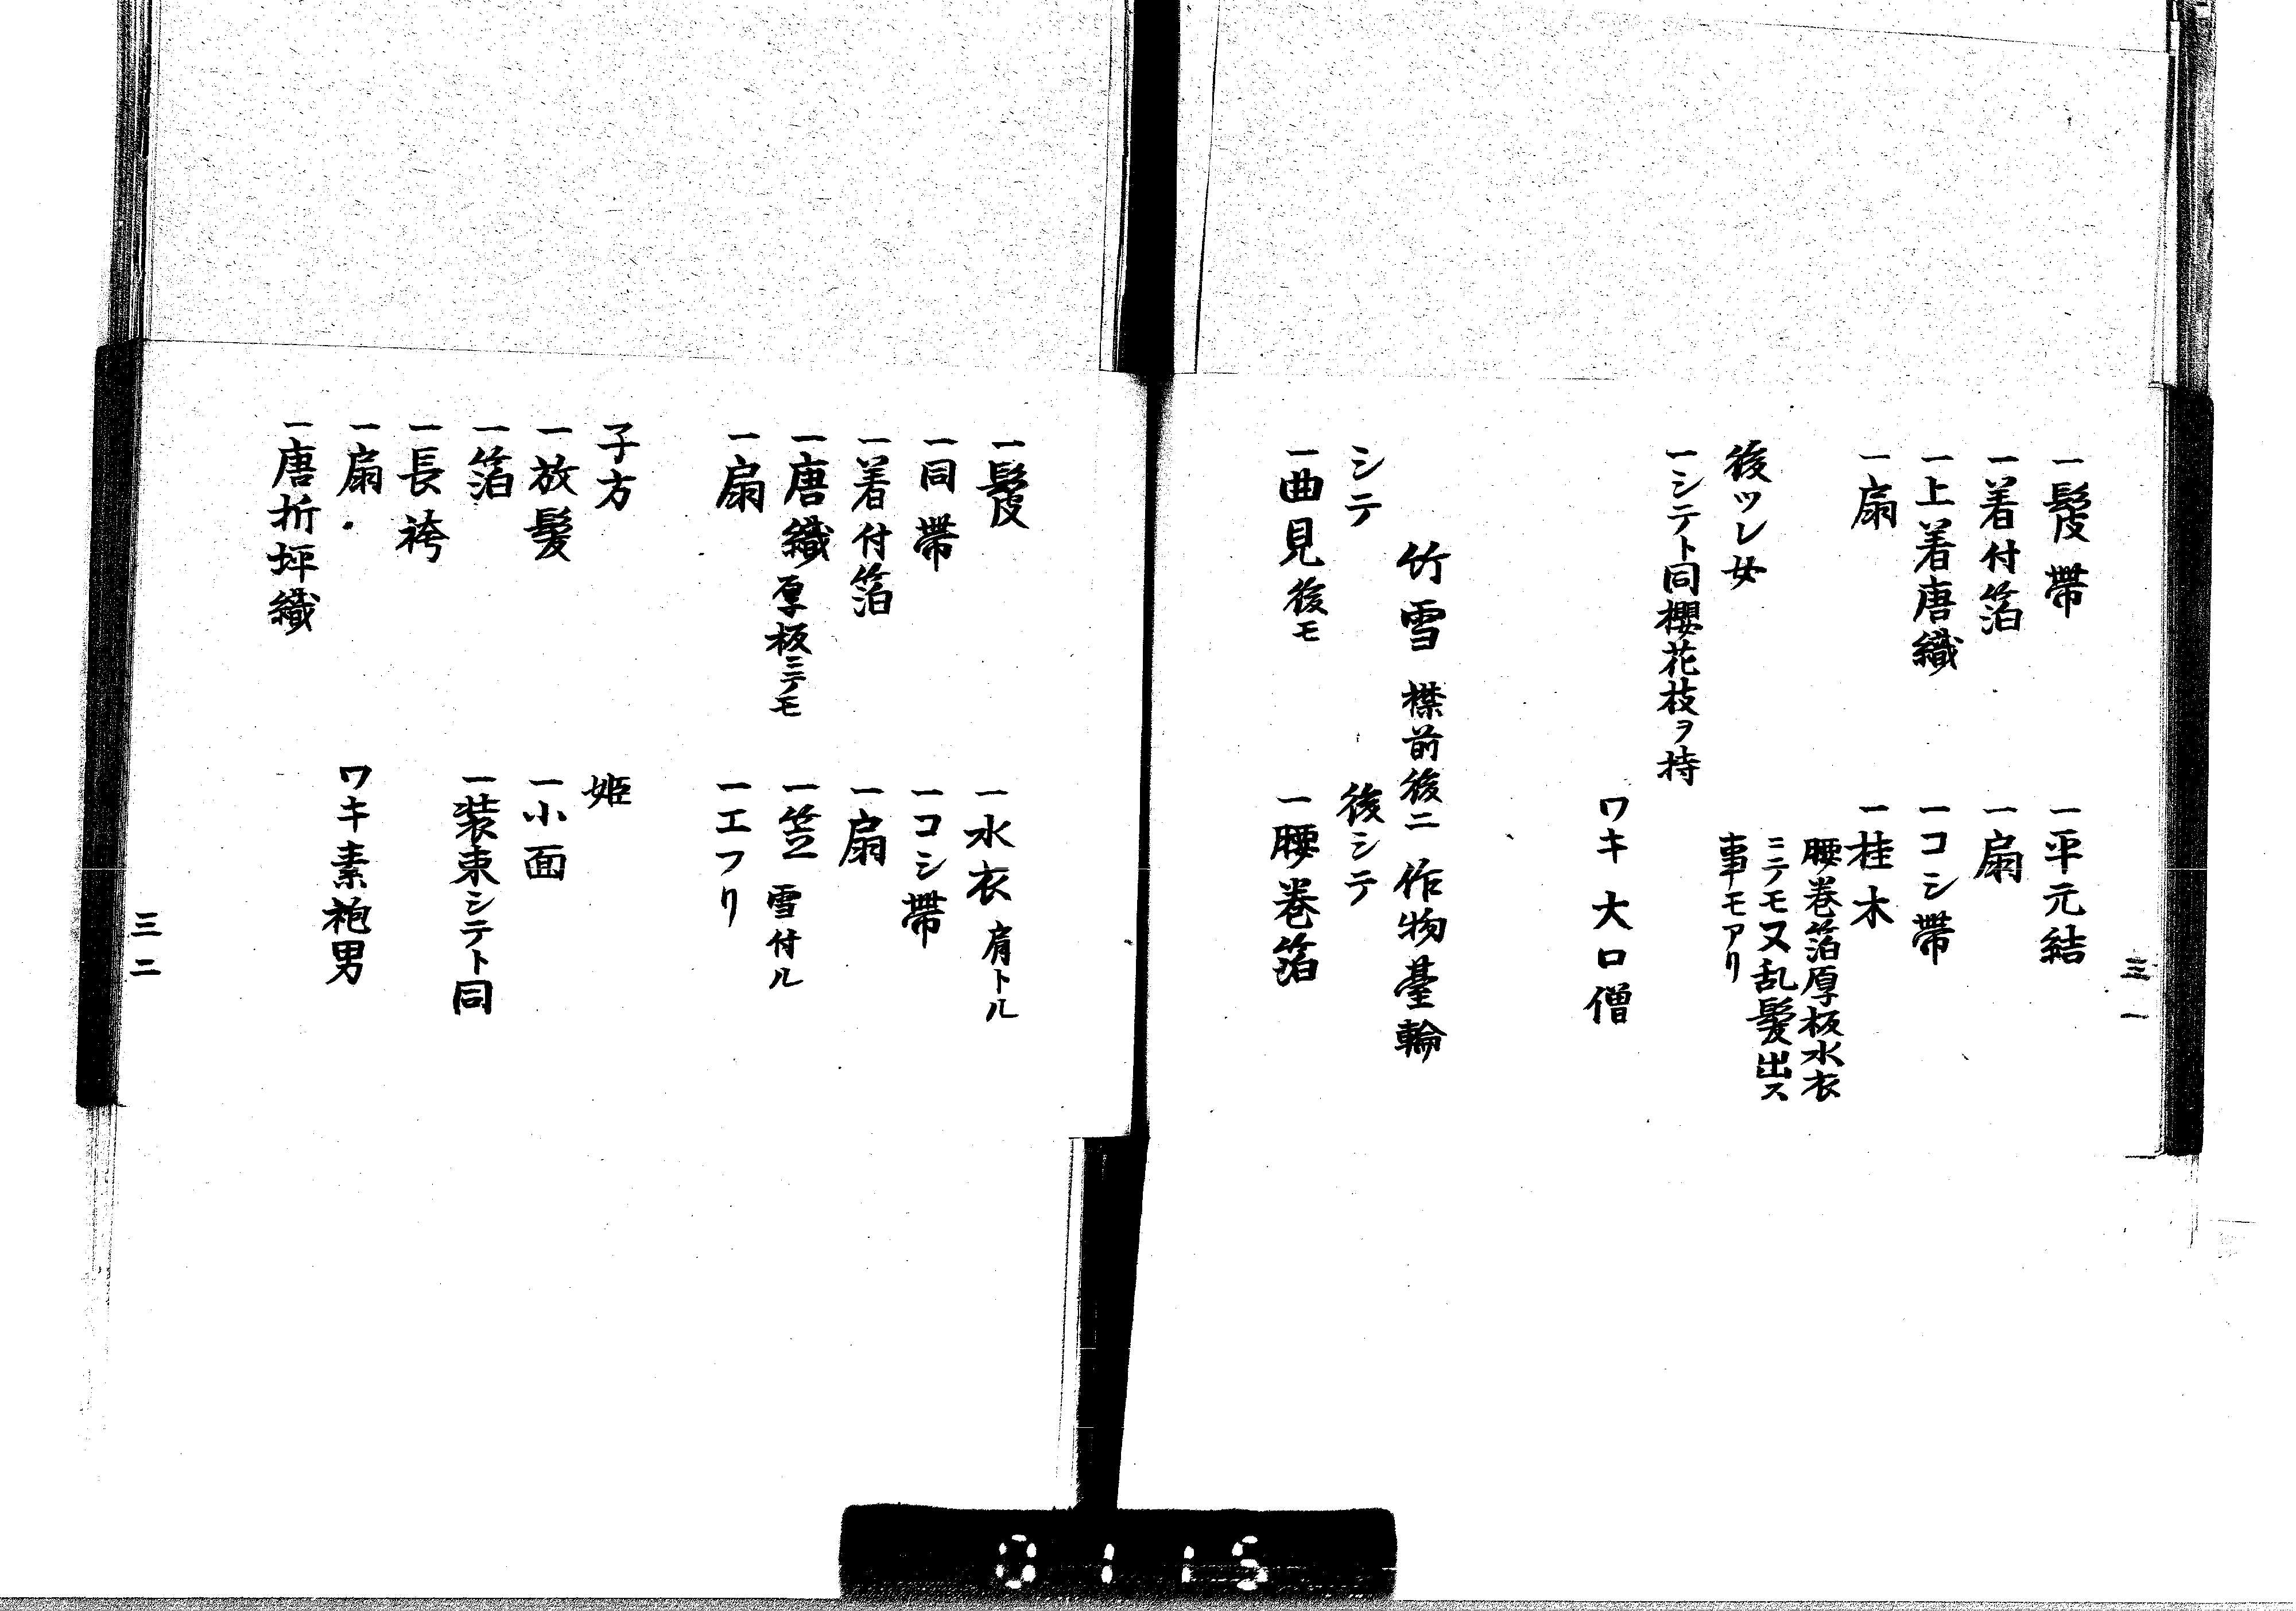 三一
一髲帶　一平元結
一着付箔　一扇
一上着唐織　一コシ帶
一扇　一桂木
腰巻箔厚板水衣
ニテモ又乱髪出ス
事モアリ
後ツレ女
一シテト同櫻花枝ヲ持
ワキ 大口僧
竹雪 襟前後ニ 作物臺輪
シテ　後シテ
一曲見 後モ　一腰巻箔
一髲　一水衣 肩トル
一同帶　一コシ帶
一着付箔　一扇
一唐織 厚板ニテモ　一笠 雪付ル
一扇　一エフリ
子方　姫
一放髪　一小面
一箔　一装束シテト同
一長袴
一扇　ワキ素袍男
一唐折坪織
三二